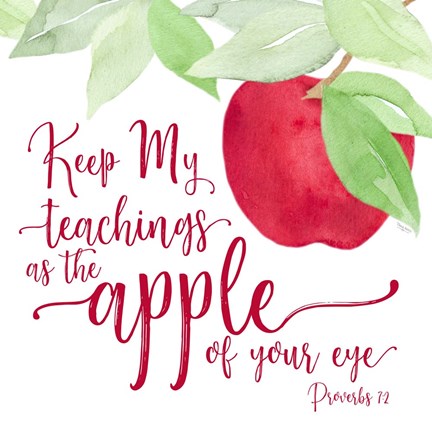 Keep My
teachings
as the
apple
of your eye
Proverbs 7:2